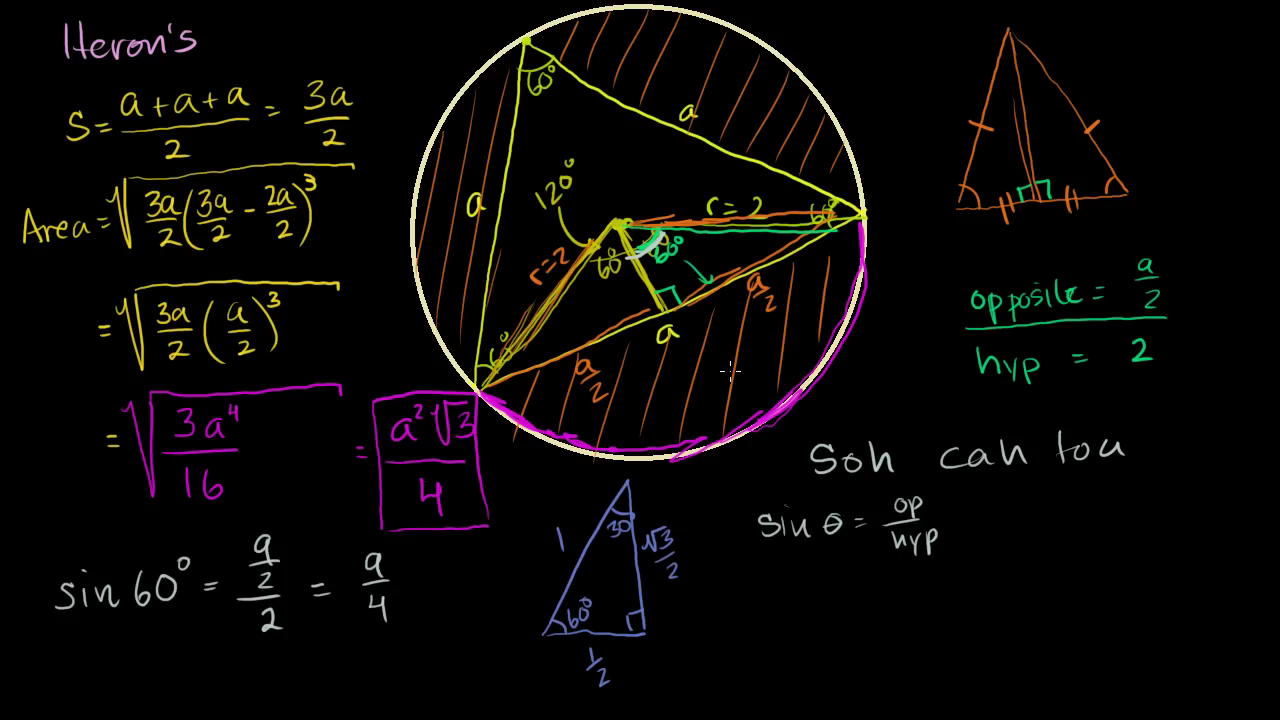 Heron's
S = (a + a + a)/2 = 3a/2
Area = √(3a/2 (3a/2 - 2a/2)³)
= √(3a/2 (a/2)³)
= √(3a⁴/16) = a²√3/4
sin 60° = (a/2)/2 = a/4
60°
a
a
120°
r = 2
60°
r = 2
60°
60°
a/2
a
a/2
60°
opposite = a/2
hyp = 2
Soh cah toa
sin θ = op/hyp
1
30
√3/2
60°
1/2